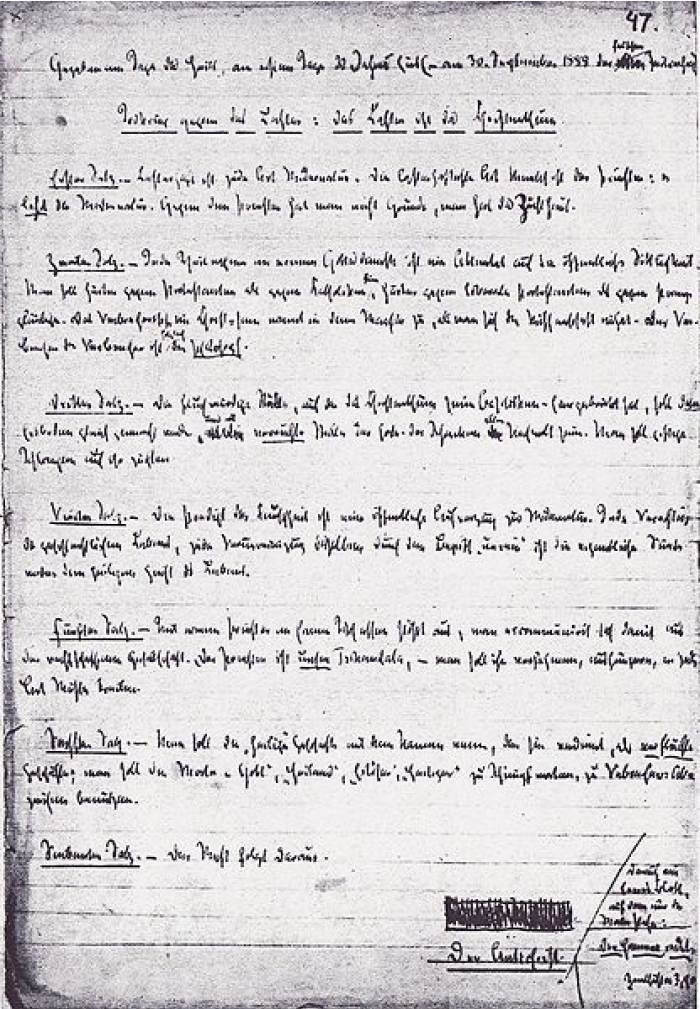 47.
Gegeben am Tage des Heils, am ersten Tage des Jahres Eins (— am 30. September 1888 der falschen Zeitrechnung
Todkrieg gegen das Laster: das Laster ist das Christenthum
Erster Satz. — Lasterhaft ist jede Art Widernatur. Die lasterhafteste Art Mensch ist der Priester: er
lehrt die Widernatur. Gegen den Priester hat man nicht Gründe, man hat das Zuchthaus.
Zweiter Satz. — Jede Theilnahme an einem Gottesdienste ist ein Attentat auf die öffentliche Sittlichkeit.
Man soll härter gegen Protestanten als gegen Katholiken sein, härter gegen liberale Protestanten als gegen streng-
gläubige. Das Verbrecherische im Christ-sein nimmt in dem Maasse zu, als man sich der Wissenschaft nähert. Der Ver-
brecher der Verbrecher ist folglich der Philosoph.
Dritter Satz. — Die fluchwürdige Stätte, auf der das Christenthum seine Basilisken-Eier gebrütet hat, soll dem
Erdboden gleich gemacht werden und als verruchte Stelle der Erde der Schrecken aller Nachwelt sein. Man soll giftige
Schlangen auf ihr züchten.
Vierter Satz. — Die Predigt der Keuschheit ist eine öffentliche Aufreizung zur Widernatur. Jede Verachtung
des geschlechtlichen Lebens, jede Verunreinigung desselben durch den Begriff „unrein“ ist die eigentliche Sünde
wider den heiligen Geist des Lebens.
Fünfter Satz. — Mit einem Priester an Einem Tisch essen stößt aus: man excommunicirt sich damit aus
der rechtschaffnen Gesellschaft. Der Priester ist unser Tschandala, — man soll ihn verfehmen, aushungern, in jede
Art Wüste treiben.
Sechster Satz. — Man soll die „heilige“ Geschichte mit dem Namen nennen, den sie verdient, als verfluchte
Geschichte; man soll die Worte „Gott“, „Heiland“, „Erlöser“, „Heiliger“ zu Schimpfworten, zu Verbrecher-Ab-
zeichen benutzen.
Siebenter Satz. — Der Rest folgt daraus.
Der Antichrist
auf dem nur die
Worte stehn:
Der Hammer redet
Zarathustra 3, 90